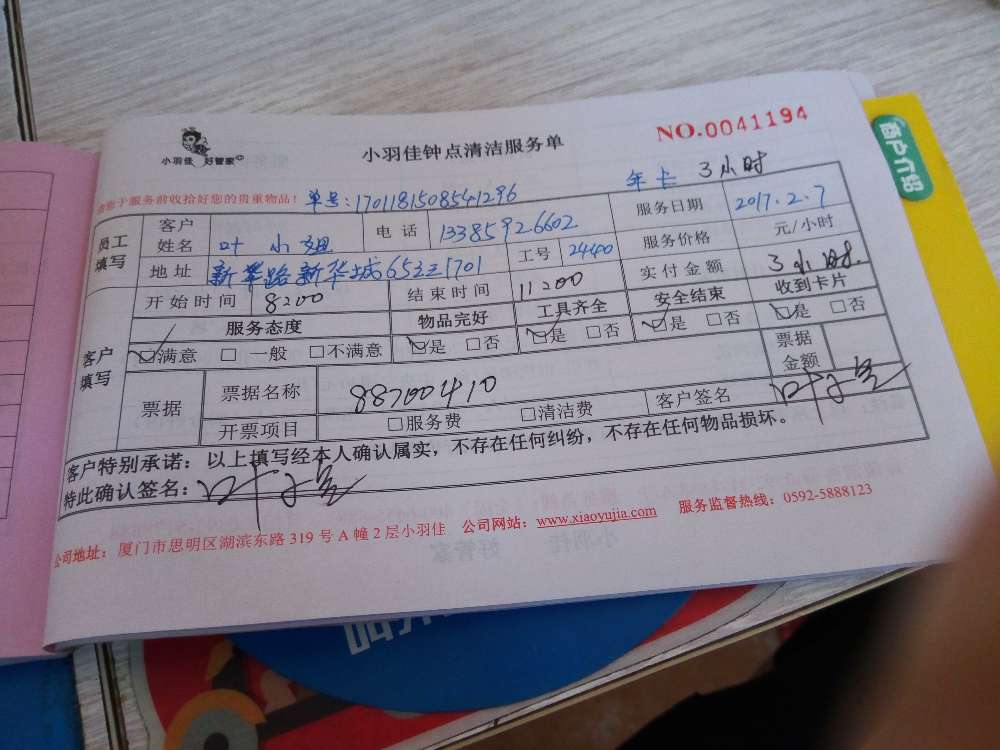 小羽佳 好管家
小羽佳钟点清洁服务单
NO.0041194
请您于服务前收拾好您的贵重物品! 单号:1701181508541296
年卡 3小时
员工填写 客户姓名 叶小姐 电话 13385926602 服务日期 2017.2.7
地址 新华路新华城65 1701 工号 24400 服务价格 元/小时
开始时间 8:00 结束时间 11:00 实付金额 3小时
客户填写 服务态度 物品完好 工具齐全 安全结束 收到卡片
☑满意 □一般 □不满意 ☑是 □否 ☑是 □否 ☑是 □否 ☑是 □否
票据 票据名称 88700410 票据金额
开票项目 □服务费 □清洁费 客户签名
客户特别承诺:以上填写经本人确认属实,不存在任何纠纷,不存在任何物品损坏。
特此确认签名:
公司地址:厦门市思明区湖滨东路319号A幢2层小羽佳 公司网站:www.xiaoyujia.com 服务监督热线:0592-5888123